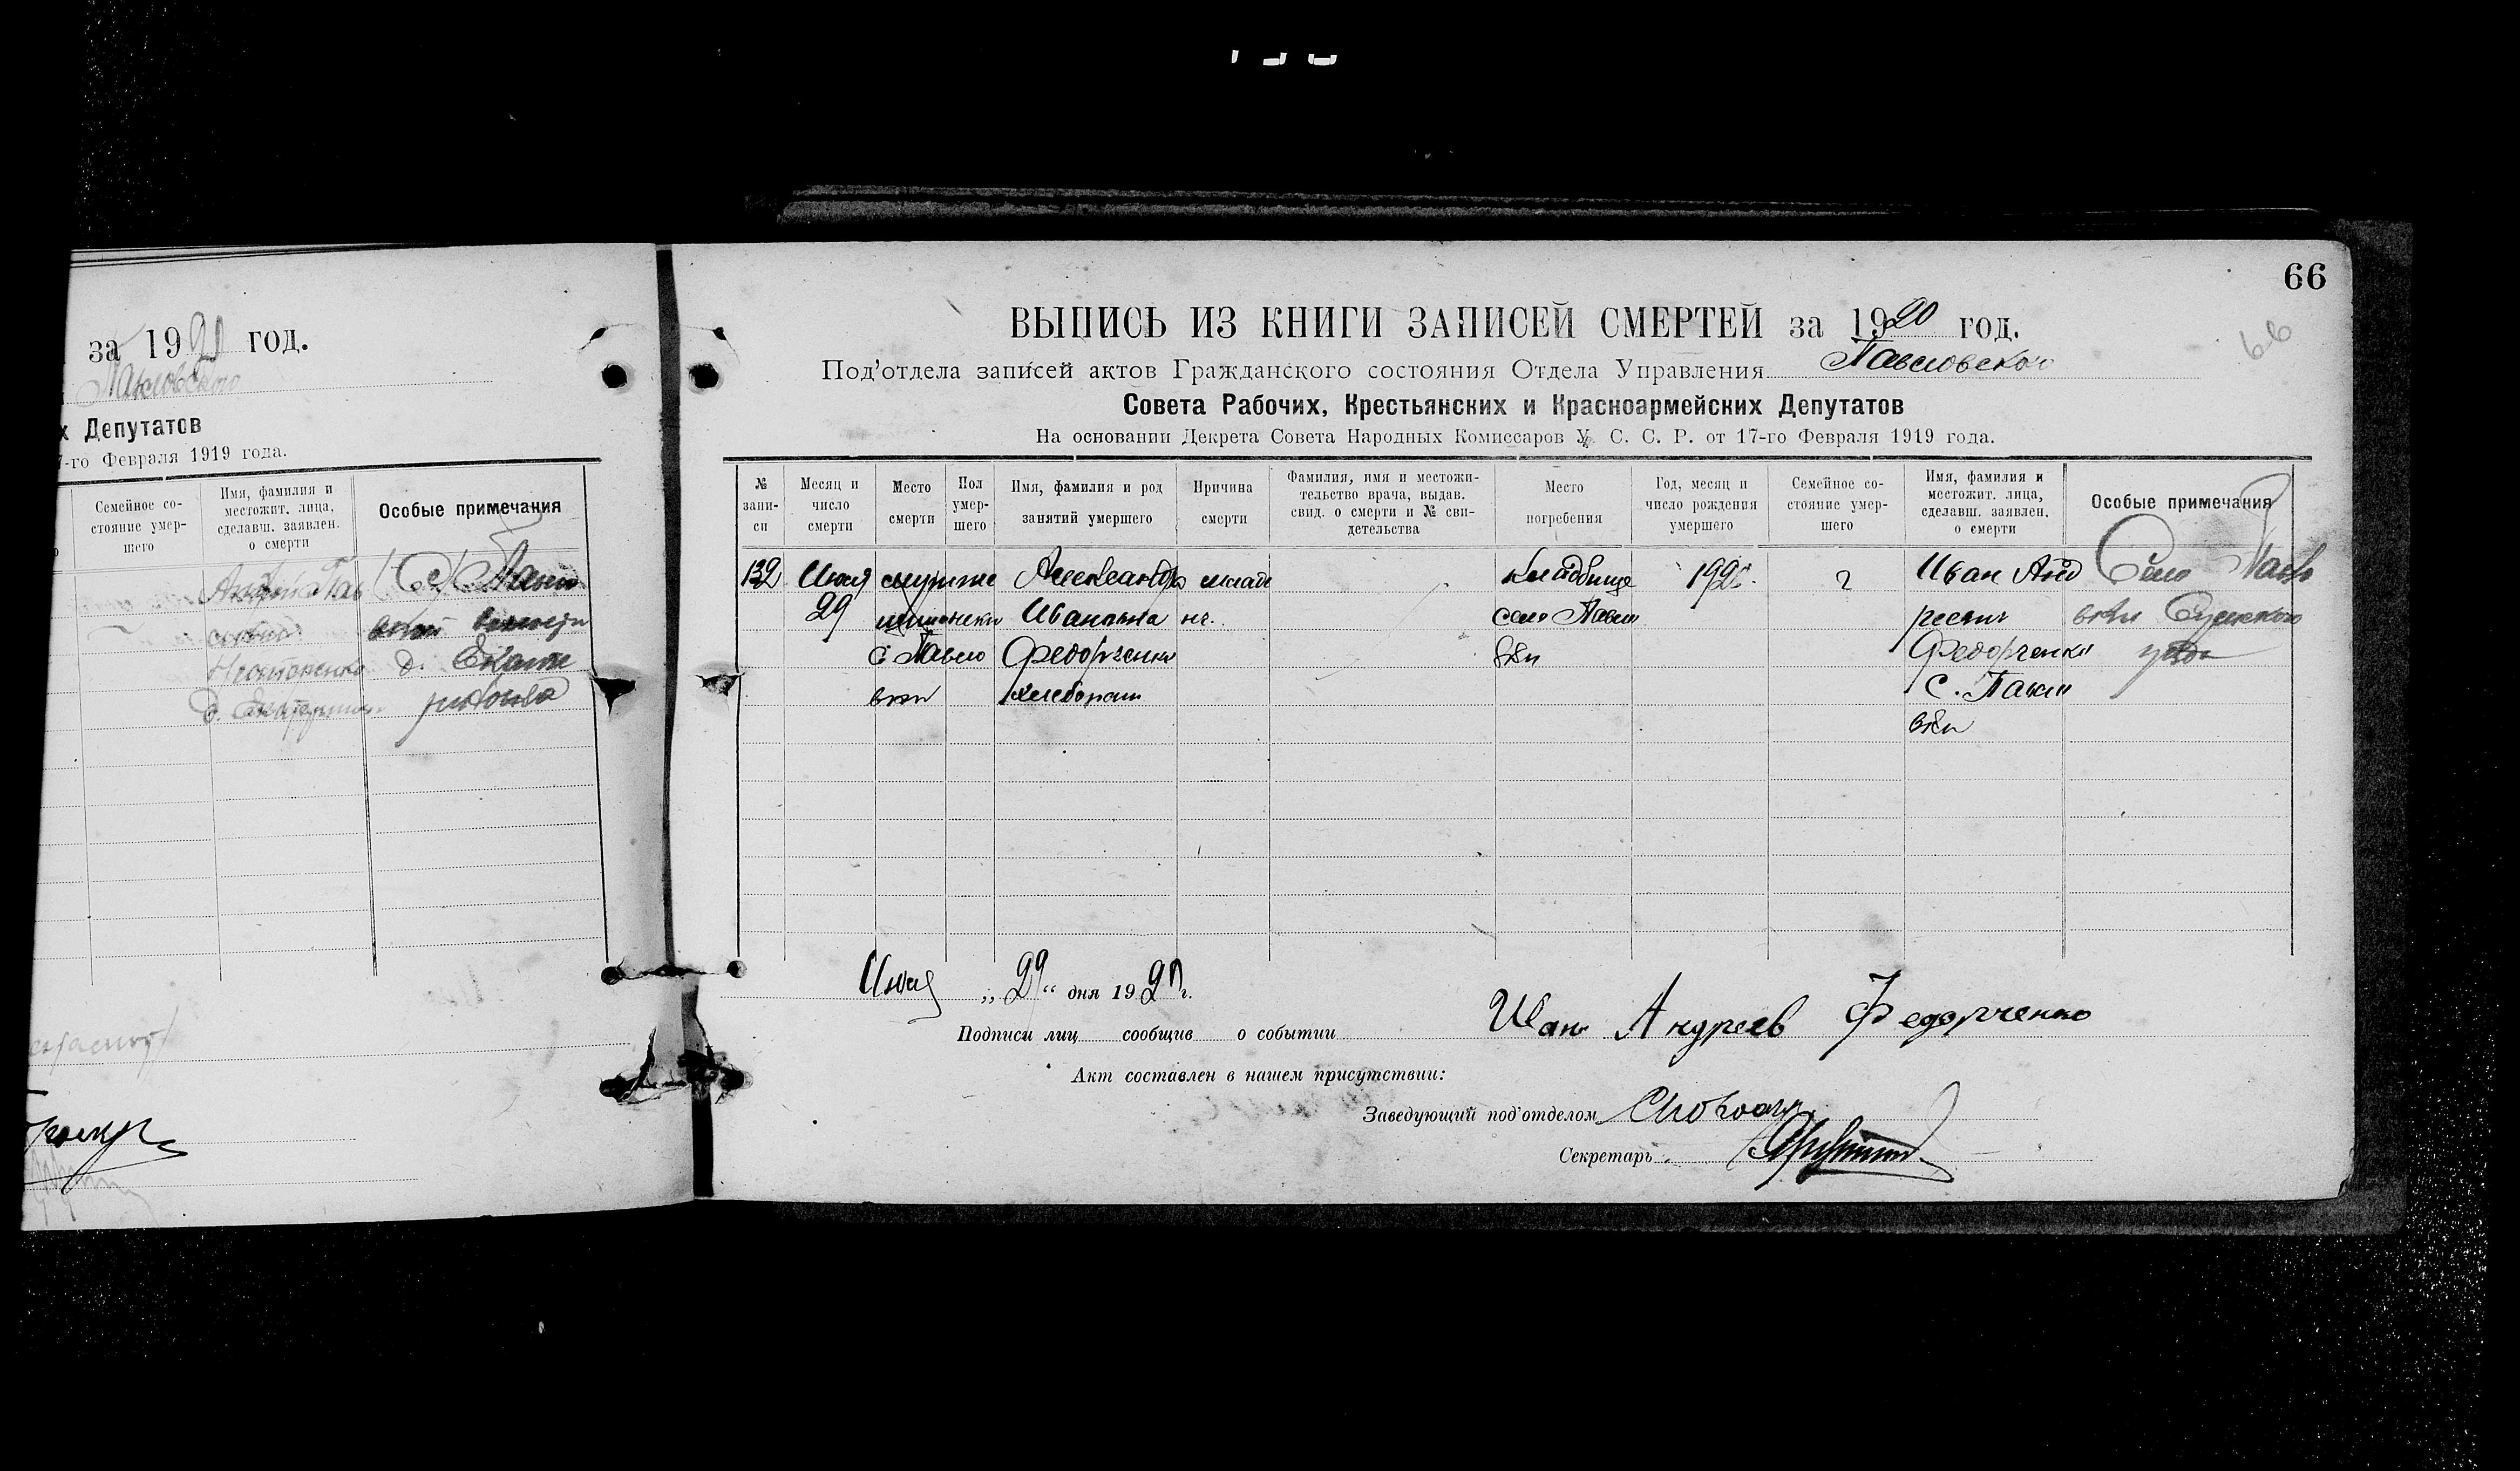 за 1920 год.
Павловского
х Депутатов
7-го Февраля 1919 года.
Семейное со-
стояние умер-
шего
Имя, фамилия и
местожит. лица,
сделавш. заявлен.
о смерти
Особые примечания
Нестеренко
д. Екате
66
66
ВЫПИСЬ ИЗ КНИГИ ЗАПИСЕЙ СМЕРТЕЙ за 1920 год.
Под'отдела записей актов Гражданского состояния Отдела Управления Павловского
Совета Рабочих, Крестьянских и Красноармейских Депутатов
На основании Декрета Совета Народных Комиссаров У. С. С. Р. от 17-го Февраля 1919 года.
№
запи-
си
Месяц и
число
смерти
Место
смерти
Пол
умер-
шего
Имя, фамилия и род
занятий умершего
Причина
смерти
Фамилия, имя и местожи-
тельство врача, выдав.
свид. о смерти и № сви-
детельства
Место
погребения
Год, месяц и
число рождения
умершего
Семейное со-
стояние умер-
шего
Имя, фамилия и
местожит. лица,
сделавш. заявлен.
о смерти
Особые примечания
132
29
с Павло
вки
Александра
Ивановна
Федорченко
хлебопаш
младе
нч.
Кладбище
село Павло
вки
Иван Анд
реевич
Федорченко
С. Павло
вки
Село Павло
вки Сумского
уезда
„29“ дня 1920 г.
Подписи лиц сообщив о событии Иван Андреев Федорченко
Акт составлен в нашем присутствии:
Заведующий под'отделом
Секретарь